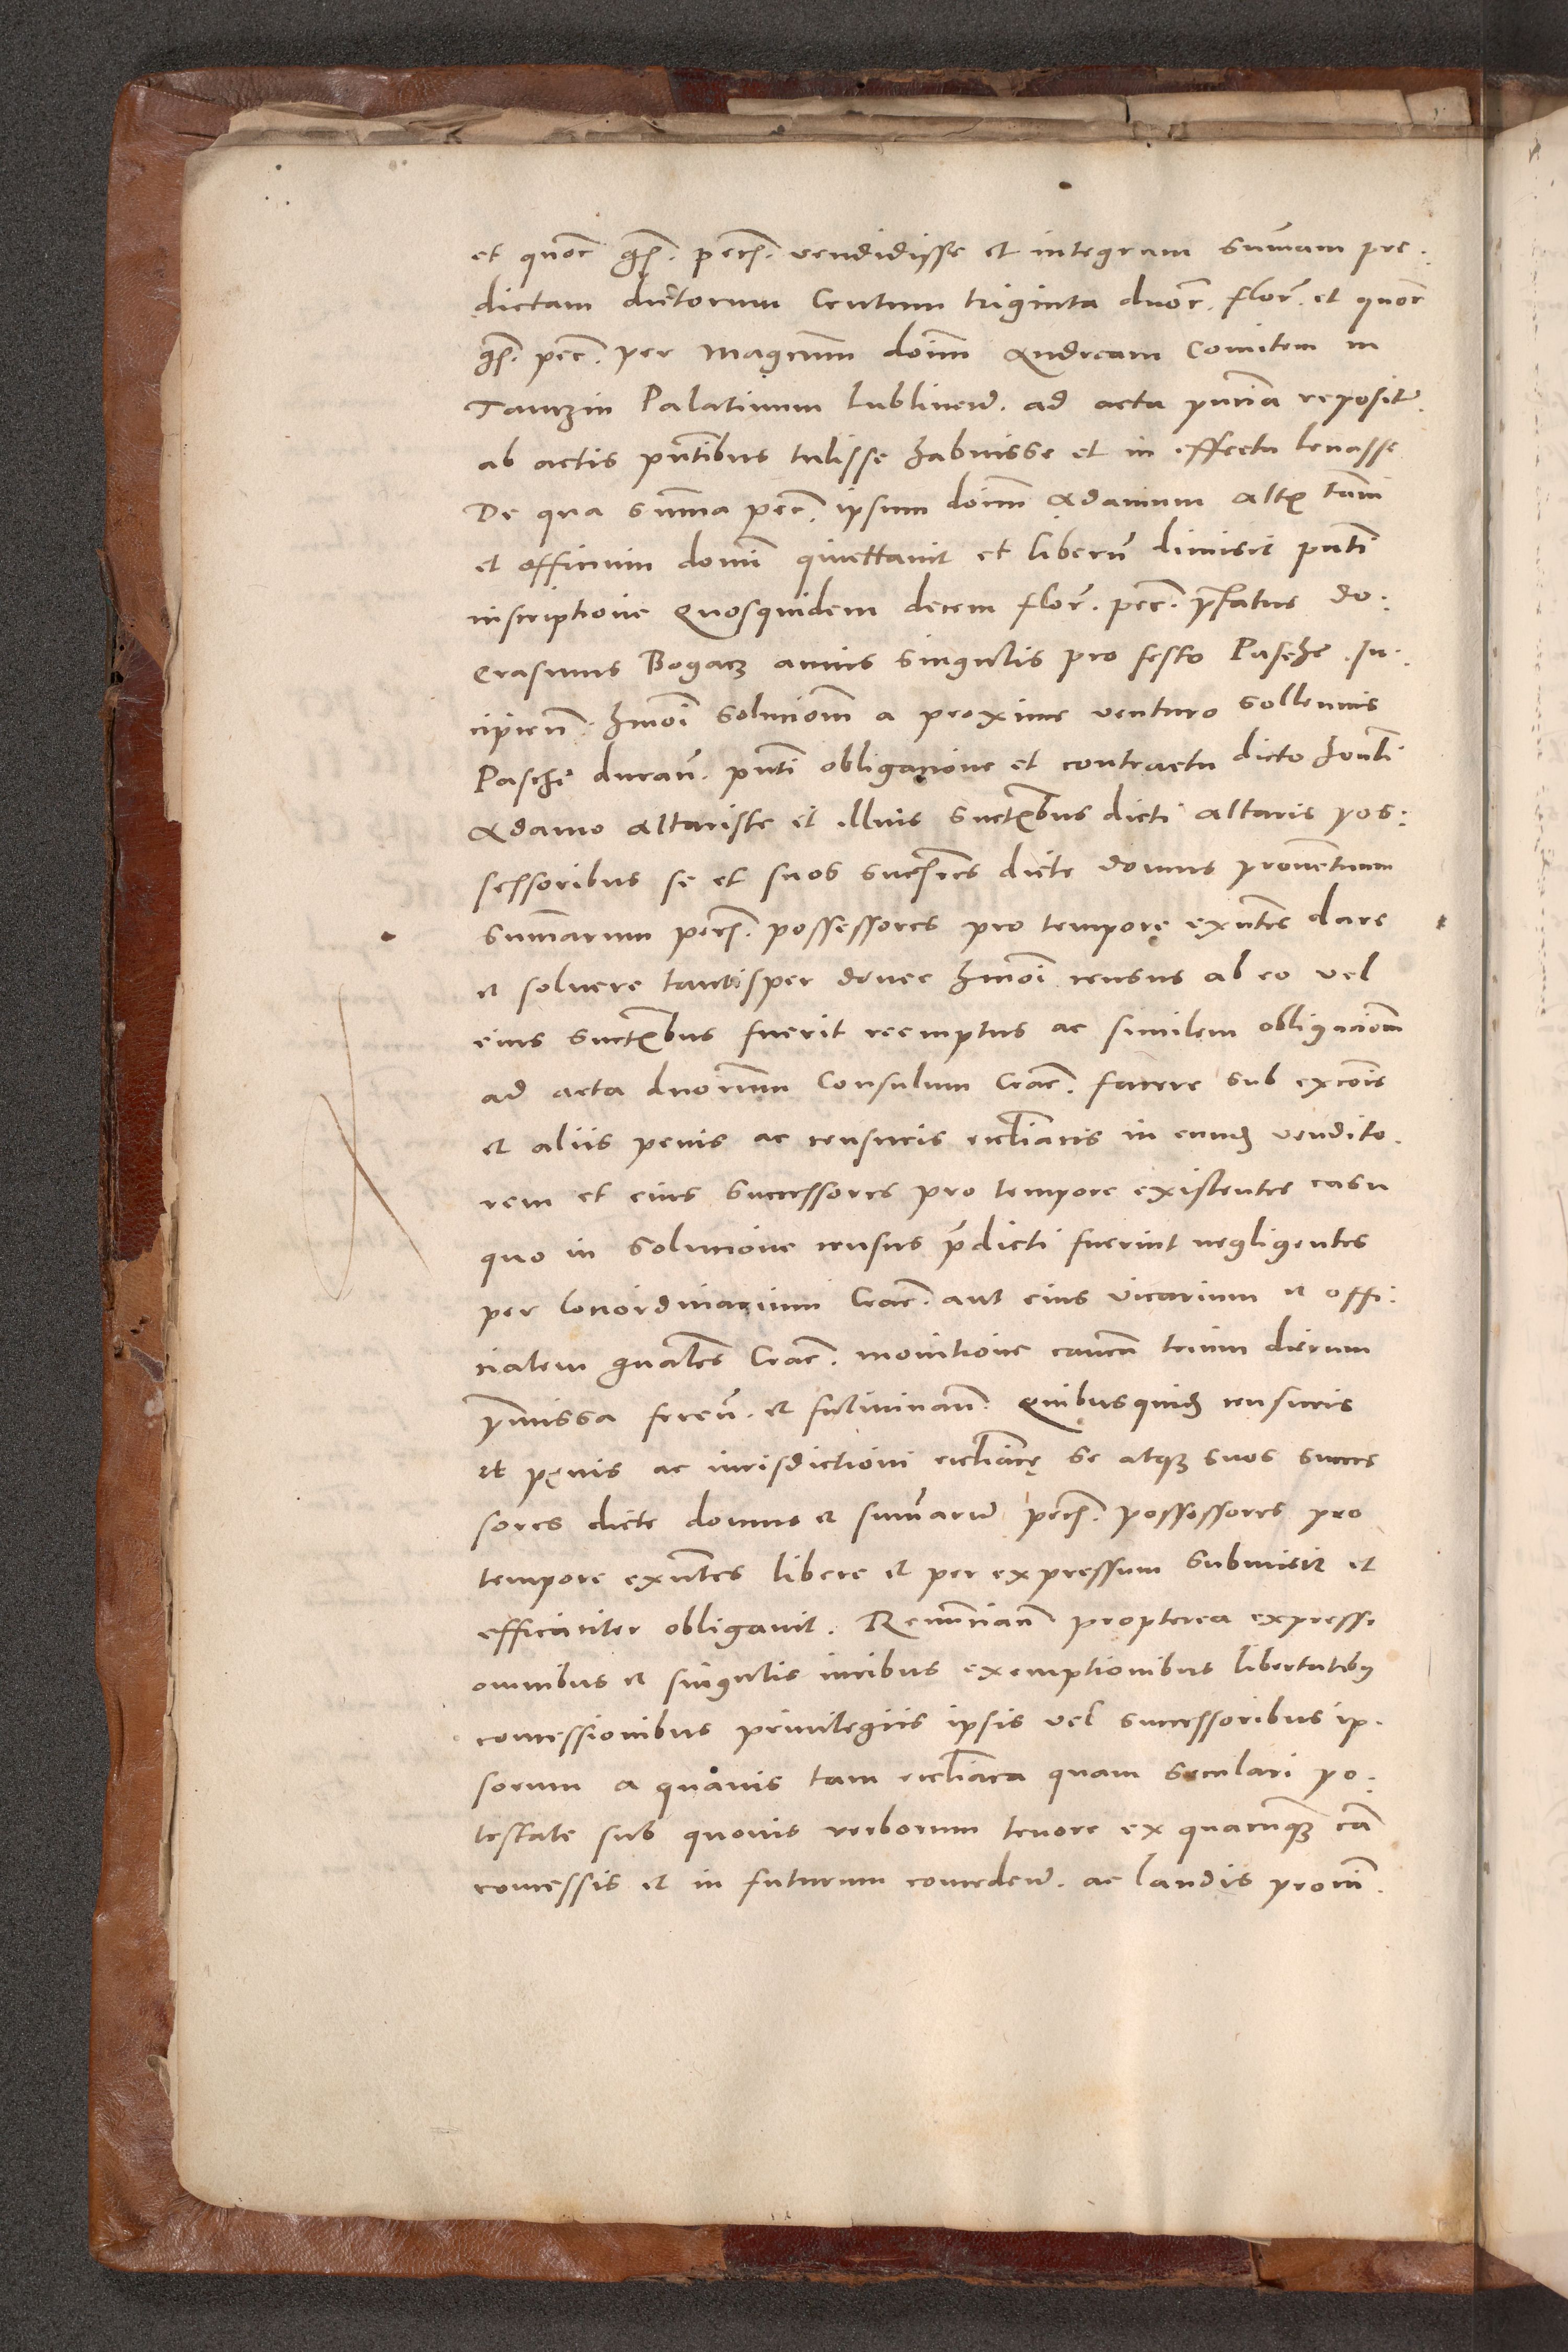 et quoꝛ gs̃. pecs̃. vendidisse et integram sum̃am pre.
dictam dictorum Centum triginta duoꝛ. florꝭ. et quoꝛ
gs̃. pec̃. per Magcum̃ doim̃ Andream Comitem in
Tanczin Palatinum lublineñ. ad acta pñcia reposit
ab actis pñtibus tulisse habuisse et in effectu leuasse
De qua sum̃a pec̃. ipsum doim̃ Adamum
et officium quiettauit et liberũ dimisit pñti
inscriptione Quosquidem decem florꝭ. pec̃. p̃fatus do.
Erasmus Bogacz annis singulis pro festo Pasche In.
cipieñ. hmoi soluciom̃ a proxime venturo sollennis
Pasche durañ. pñti obligacione et contractu dicto honli
Adamo altariste et illius suctibus dicti altaris pos:
sessoribus se et suos suctes dicte domus prouentuum
sum̃arum pecs̃. possessores pro tempore exñtes dare
et soluere tantisper donec hmoi census ab eo vel
eius suctibus fuerit reemptus ac similem obligaciom̃
ad acta dnorum Consulum Crac̃. facere sub excois
et aliis penis ac censuris ecclīacis in eumd vendito.
rem et eius successores pro tempore existentes casu
quo in solucione census p̃dicti fuerint negligentes
per loci ordinarium Crac̃. aut eius vicarium et offi:
cialem gnalēs Crac̃. monitione canca trium dierum
p̃missa fereñ. et fulminañ. Quibusquid censuris
et pęnis ac iurisdictioni ecclīacę se atqꝫ suos succes
sores dicte domus et sum̃aru pecs̃. possessores pro
tempore exñtes libere et per expressum submisit et
efficaciter obligauit. Renunciañ propterea expresse
omnibus et singulis iuribus exemptionibus libertatibꝫ
concessionibus priuilegiis ipsis vel successoribus ip.
sorum a quauis tam ecclīaca quam seculari po:
testate sub quouis verborum tenore ex quacunqꝫ cā
concessis et in futurum concedeñ. ac laudis